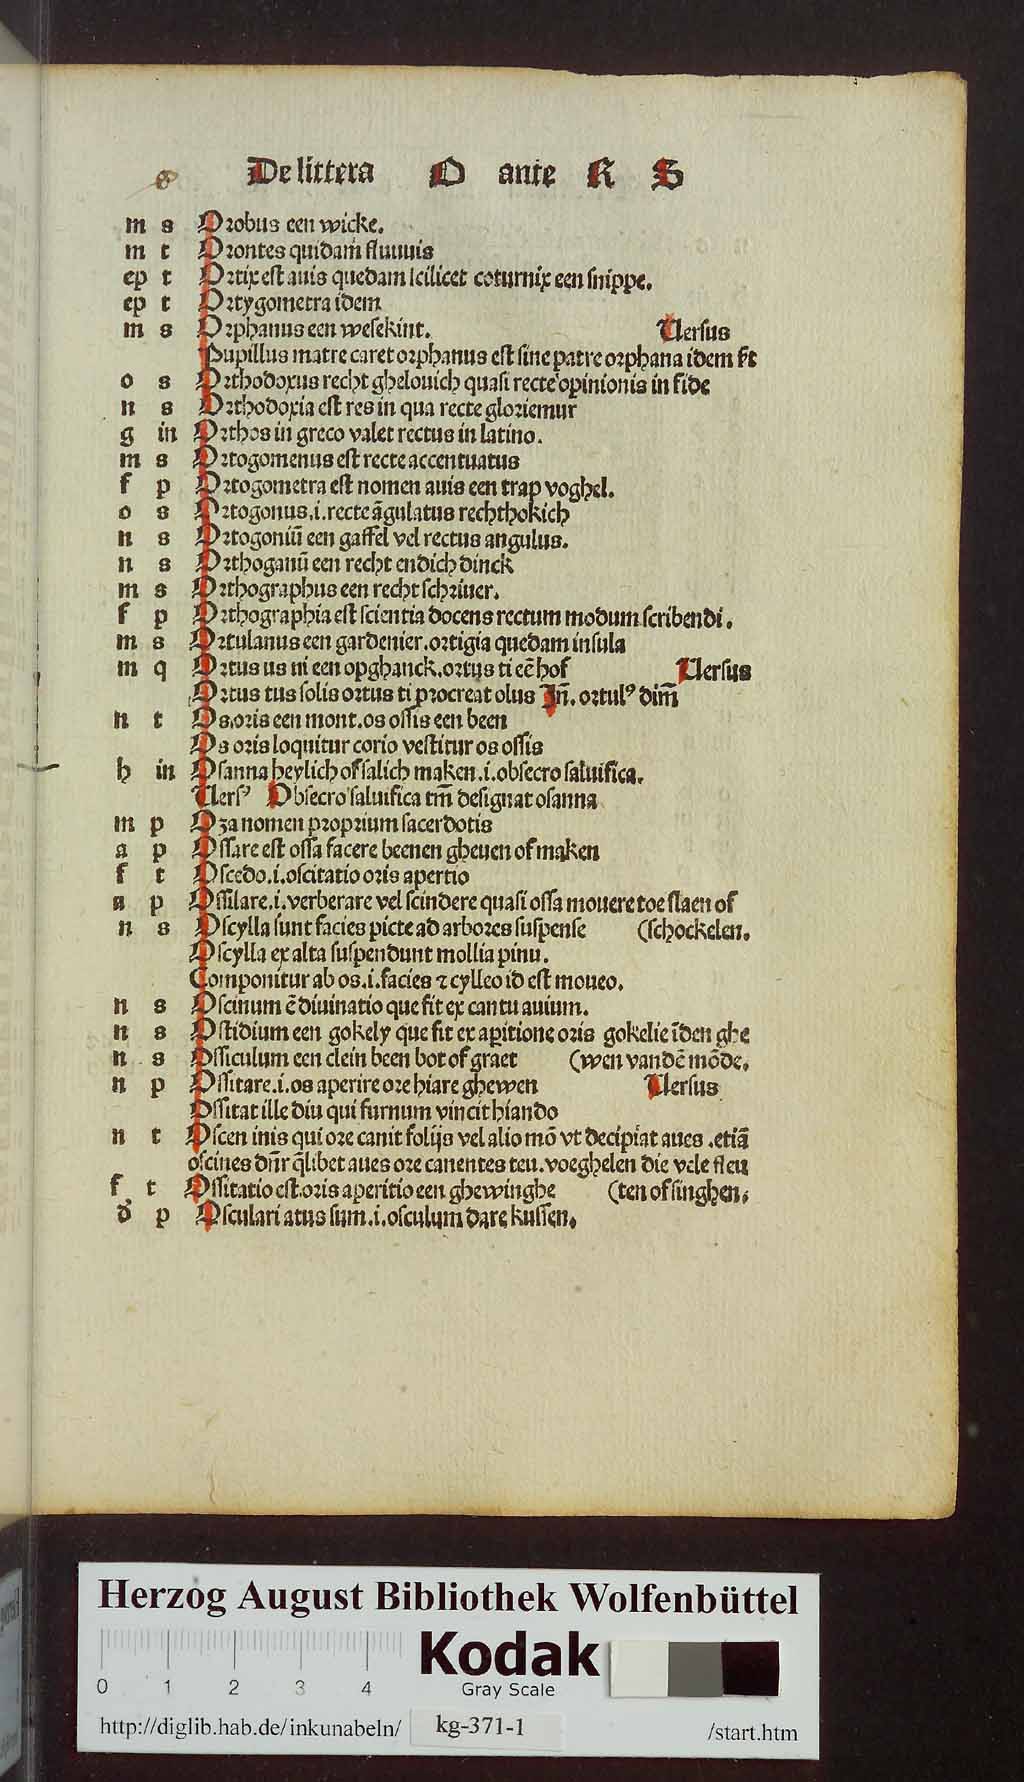 De littera O ante R S
m s Orobus een wicke.
m t Orontes quidam fluuuis
ep t Ortix est auis quedam scilicet coturnix een snippe.
ep t Ortygometra idem
m s Orphanus een wesekint. Uersus
Pupillus matre caret orphanus est sine patre orphana idem
o s Orthodoxus recht ghelouich quasi recte opinionis in fide
n s Orthodoxia est res in qua recte gloriemur
g in Orthos in greco valet rectus in latino.
m s Ortogomenus est recte accentuatus
f p Ortogometra est nomen auis een trap voghel.
o s Ortogonus.i.recte āgulatus rechthokich
n s Ortogoniū een gaffel vel rectus angulus.
n s Orthoganū een recht endich dinck
m s Orthographus een recht schriuer.
f p Orthographia est scientia docens rectum modum scribendi.
m s Ortulanus een gardenier.ortigia quedam insula
m q Ortus us ui een opghanck.ortus ti eē hof Uersus
Ortus tus solis ortus ti procreat olus Jn̄. ortulꝰ dim̄
n t Os.oris een mont.os ossis een been
Os oris loquitur corio vestitur os ossis
h in Osanna heylich of salich maken.i.obsecro saluifica.
Uersꝰ Obsecro saluifica tm̄ designat osanna
m p Oza nomen proprium sacerdotis
a p Ossare est ossa facere beenen gheuen of maken
f t Oscedo.i.oscitatio oris apertio
a p Ossilare.i.verberare vel scindere quasi ossa mouere toe slaen of
n s Oscylla sunt facies picte ad arbores suspense (schockelen.
Oscylla ex alta suspendunt mollia pinu.
Componitur ab os.i.facies ⁊ cylleo id est moueo.
n s Oscinum ē diuinatio que fit ex cantu auium.
n s Ostidium een gokely que fit ex apitione oris gokelie īden ghe
n s Ossiculum een clein been bot of graet (wen vandē mōde.
n p Ossitare.i.os aperire ore hiare ghewen Uersus
Ossitat ille diu qui furnum vincit hiando
n t Oscen inis qui ore canit folijs vel alio mō vt decipiat aues .etiā
oscines dn̄r q̄libet aues ore canentes teu.voeghelen die vele fleu
f t Ossitatio est.oris aperitio een ghewinghe (ten of singhen.
d p Osculari atus sum.i.osculum dare kussen.
Herzog August Bibliothek Wolfenbüttel
0 1 2 3 4
Kodak
Gray Scale
http://diglib.hab.de/inkunabeln/ kg-371-1 /start.htm